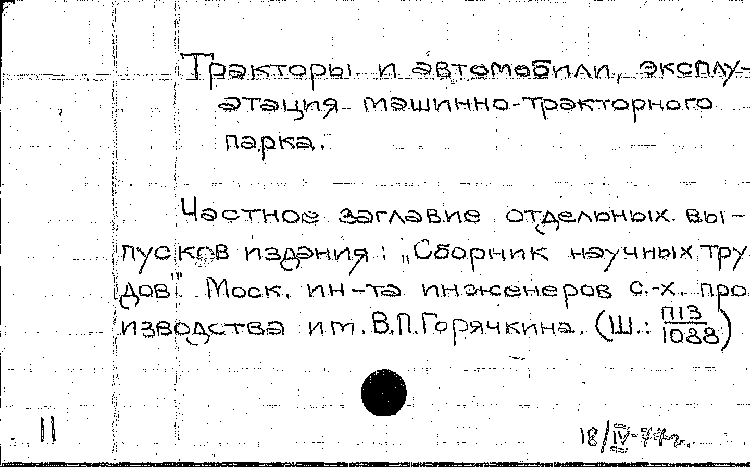 Тракторы и автомобили, эксплу-
атация машинно-тракторного
парка.
Частное заглавие отдельных вы-
пусков издания: „Сборник научных тру
дов" Моск. ин-та инженеров с.-х. про
изводства им. В.П.Горячкина. (Ш.: П13/1088)
11
18/IV-77г.